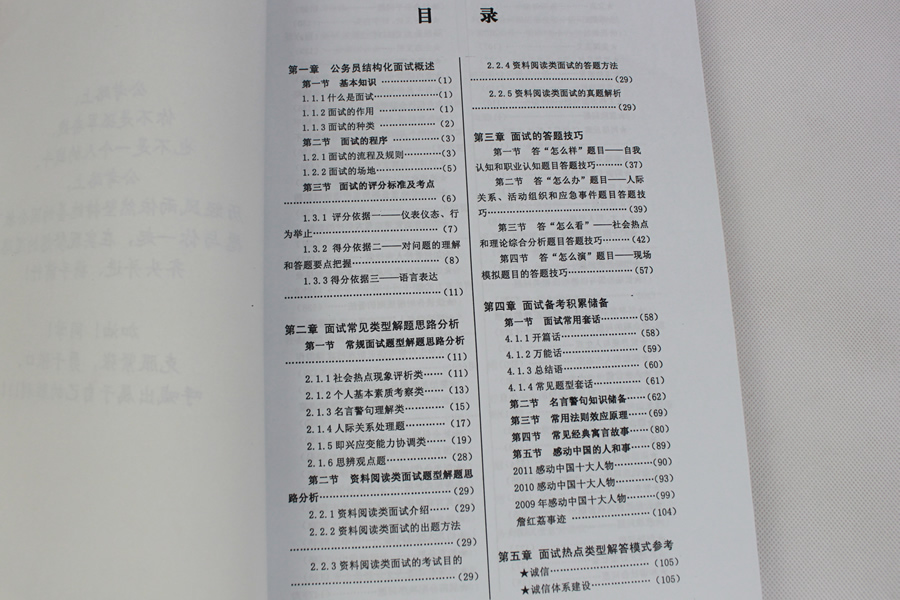 目 录
第一章 公务员结构化面试概述
第一节 基本知识 ………………(1)
1.1.1什么是面试…………………(1)
1.1.2面试的作用 ………………(1)
1.1.3面试的种类 ………………(2)
第二节 面试的程序 ……………(3)
1.2.1面试的流程及规则…………(3)
1.2.2面试的场地…………………(5)
第三节 面试的评分标准及考点
……………………………………(6)
1.3.1 评分依据一——仪表仪态、行
为举止……………………………(7)
1.3.2 得分依据二——对问题的理解
和答题要点把握…………………(8)
1.3.3得分依据三——语言表达
……………………………………(11)
第二章 面试常见类型解题思路分析
第一节 常规面试题型解题思路分析
……………………………………(11)
2.1.1社会热点现象评析类……(11)
2.1.2个人基本素质考察类……(13)
2.1.3名言警句理解类…………(15)
2.1.4人际关系处理题…………(17)
2.1.5即兴应变能力协调类……(19)
2.1.6思辨观点题………………(28)
第二节 资料阅读类面试题型解题思
路分析……………………………(29)
2.2.1资料阅读类面试介绍……(29)
2.2.2资料阅读类面试的出题方法
……………………………………(29)
2.2.3资料阅读类面试的考试目的
……………………………………(29)
2.2.4资料阅读类面试的答题方法
……………………………………(29)
2.2.5资料阅读类面试的真题解析
……………………………………(29)
第三章 面试的答题技巧
第一节 答“怎么样”题目——自我
认知和职业认知题目答题技巧………(37)
第二节 答“怎么办”题目——人际
关系、活动组织和应急事件题目答题技
巧…………………………………(39)
第三节 答“怎么看”——社会热点
和理论综合分析题目答题技巧………(42)
第四节 答“怎么演”题目——现场
模拟题目的答题技巧………………(57)
第四章 面试备考积累储备
第一节 面试常用套话…………(58)
4.1.1开篇话……………………(58)
4.1.2万能话……………………(59)
4.1.3总结语……………………(60)
4.1.4常见题型套话……………(61)
第二节 名言警句知识储备……(62)
第三节 常用法则效应原理……(69)
第四节 常见经典寓言故事……(80)
第五节 感动中国的人和事……(89)
2011感动中国十大人物…………(90)
2010感动中国十大人物…………(93)
2009年感动中国十大人物………(99)
詹红荔事迹 ……………………(104)
第五章 面试热点类型解答模式参考
★诚信……………………………(105)
★诚信体系建设…………………(105)